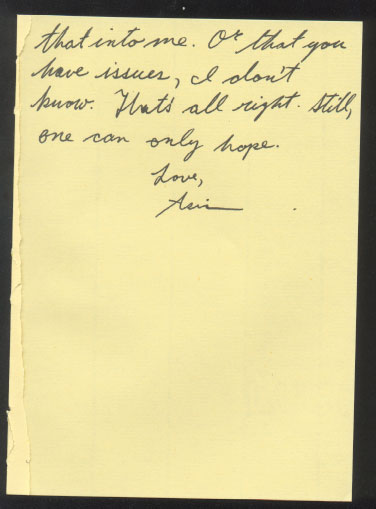 that into me. Or that you
have issues, I don't
know. That's all right. Still,
one can only hope.
Love,